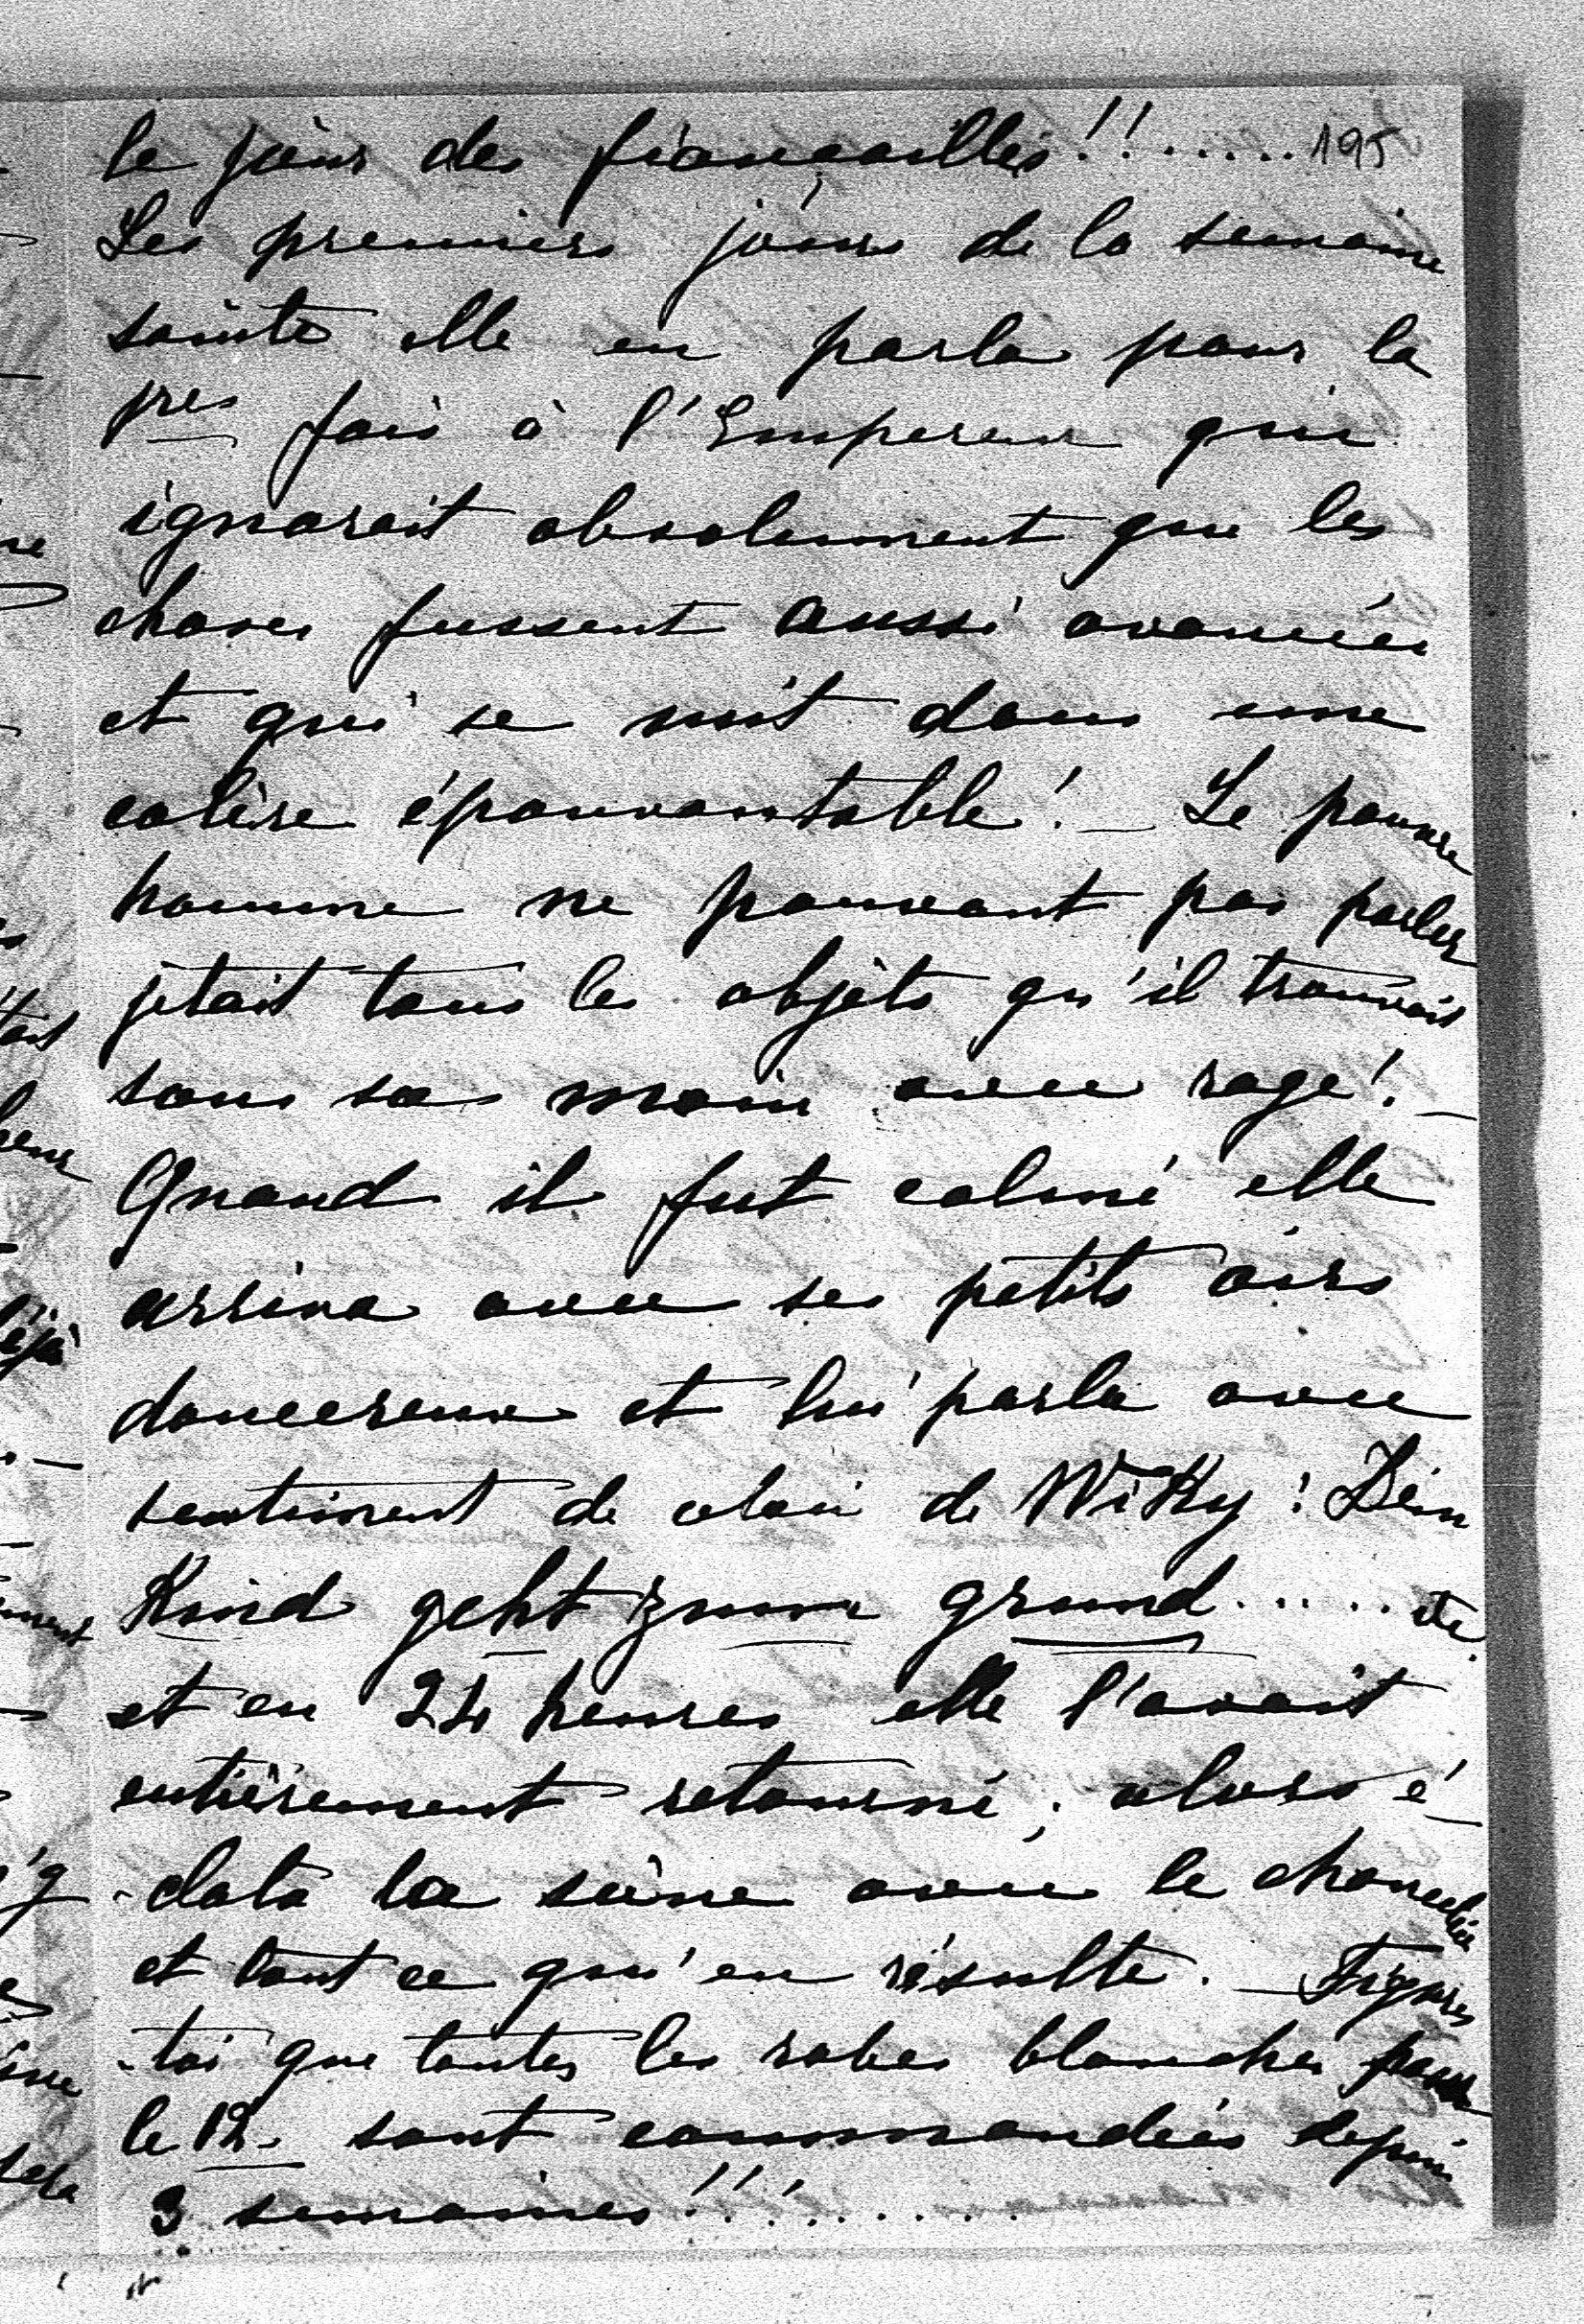 le jour des fiançailles!!....... 195
Les premiers jours de la semaine
sainte elle en parla pour la
pre fois à l'Empereur qui
ignorait absolument que les
choses fussent aussi avancées
et qui se mit dans une
colère épouvantable! — Le pauvre
homme ne pouvant pas parler
jetait tous les objets qu'il trouvait
sous sa main avec rage! —
Quand il fut calmé elle
arriva avec ses petits airs
doucereux et lui parla avec
sentiment de celui de Wiky: Dein
Kind geht zum grund...... etc.
et en 24 heures elle l'avait
entièrement retourné; alors é-
-clata la scène avec le chancelier
et tout ce qui en résulte. — Figures
-toi que toutes les robes blanches pour
le 12 sont commandées depuis
3 semaines!!!........